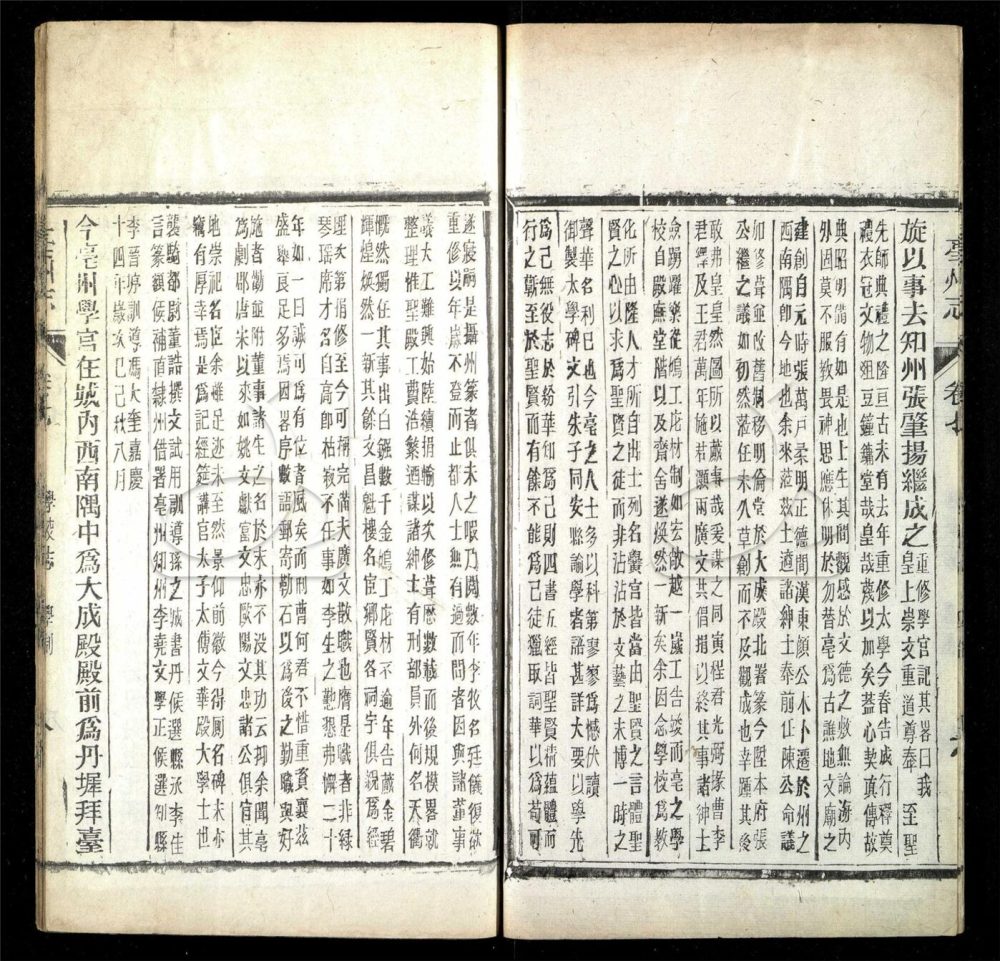 亳州志
旋以事去知州張肇揚繼成之重修學宮記其畧曰我
皇上崇文重道尊奉　至聖
先師典禮之隆亘古未有去年重修太學今春告成行釋奠
禮衣冠文物俎豆鐘鏞堂哉皇哉蔑以加矣蓋心契真傳故
典昭明備有如是也上生其間觀感於文德之敷無論海內
外固莫不服教畏神思應休明於勿替亳爲古譙地文廟之
建創自元時張萬戶柔明正德間漢東顏公木卜遷於州之
西南隅卽今地也余來蒞茲土適諸紳士奉前任陳公命議
加修葺並改舊制移明倫堂於大成殿北署篆今陞本府張
公繼之議如初然蒞任未久草創而不及觀成也幸踵其後
敢弗皇皇然圖所以蕆事哉爰謀之同寅程君光弼掾曹李
君繹及王君萬年施君灝兩廣文共倡捐以終其事諸紳士
僉踴躍樂從鳩工庀材制如宏敞越一歲工告竣而亳之學
校自殿廡堂階以及齋舍遂煥然一新矣余日念學校爲教
化所由隆人才所自出士列名黌宮皆當由聖賢之言體聖
賢之心以求爲聖賢之徒而非沾沾於文藝之末博一時之
聲華名利已也今亳之人士多以科第寥寥爲憾伏讀
御製太學碑文引朱子同安縣諭學者語甚詳大要以學先
爲己無役役於紛華知爲己則四書五經皆聖賢精蘊體而
行之蘄至於聖賢而有餘不能爲己徒獵取詞華以爲苟可
遂寢嗣是攝州篆者俱未之暇乃閱數年李牧名廷儀復欲
重修以年歲不登而止都人士無有過而問者因與諸董事
議大工難興始陸續捐輸以次修葺歷數載而後規模畧就
整理惟聖殿工費浩繁迺謀諸紳士有刑部員外何名天衢
慨然獨任其事出白鏹數千金鳩工庀材不逾年告蕆金碧
輝煌煥然一新其餘文昌魁樓名宦鄉賢各祠宇俱親爲經
理次第捐修至今可稱完滿夫廣文散職也膺是職者非緑
琴瑶席才名自高卽枯寂不任事如李生之勤懇弗懈二十
年如一日誠可爲有位者風矣而何君不惜重資襄茲
盛舉良足多焉因畧序數語郵寄勒石以爲後之勤職與好
施者勸並附董事諸生之名於末亦不没其功云抑余聞亳
爲劇郡唐宋以來如姚文獻富文忠歐陽文忠諸公俱官其
地崇祀名宦余雖足迹未至然景仰前徽今得厠名碑末亦
竊有厚幸焉是爲記經筵講官太子太傅文華殿大學士世
襲騎都尉董誥撰文試用訓導孫之城書丹候選縣丞李佳
言篆額候補直隸州借署亳州知州李堯文學正候選知縣
李晉婷訓導馮大奎嘉慶
十四年歲次己巳秋八月
今亳州學宮在城內西南隅中爲大成殿殿前爲丹墀拜臺
學校志　學制